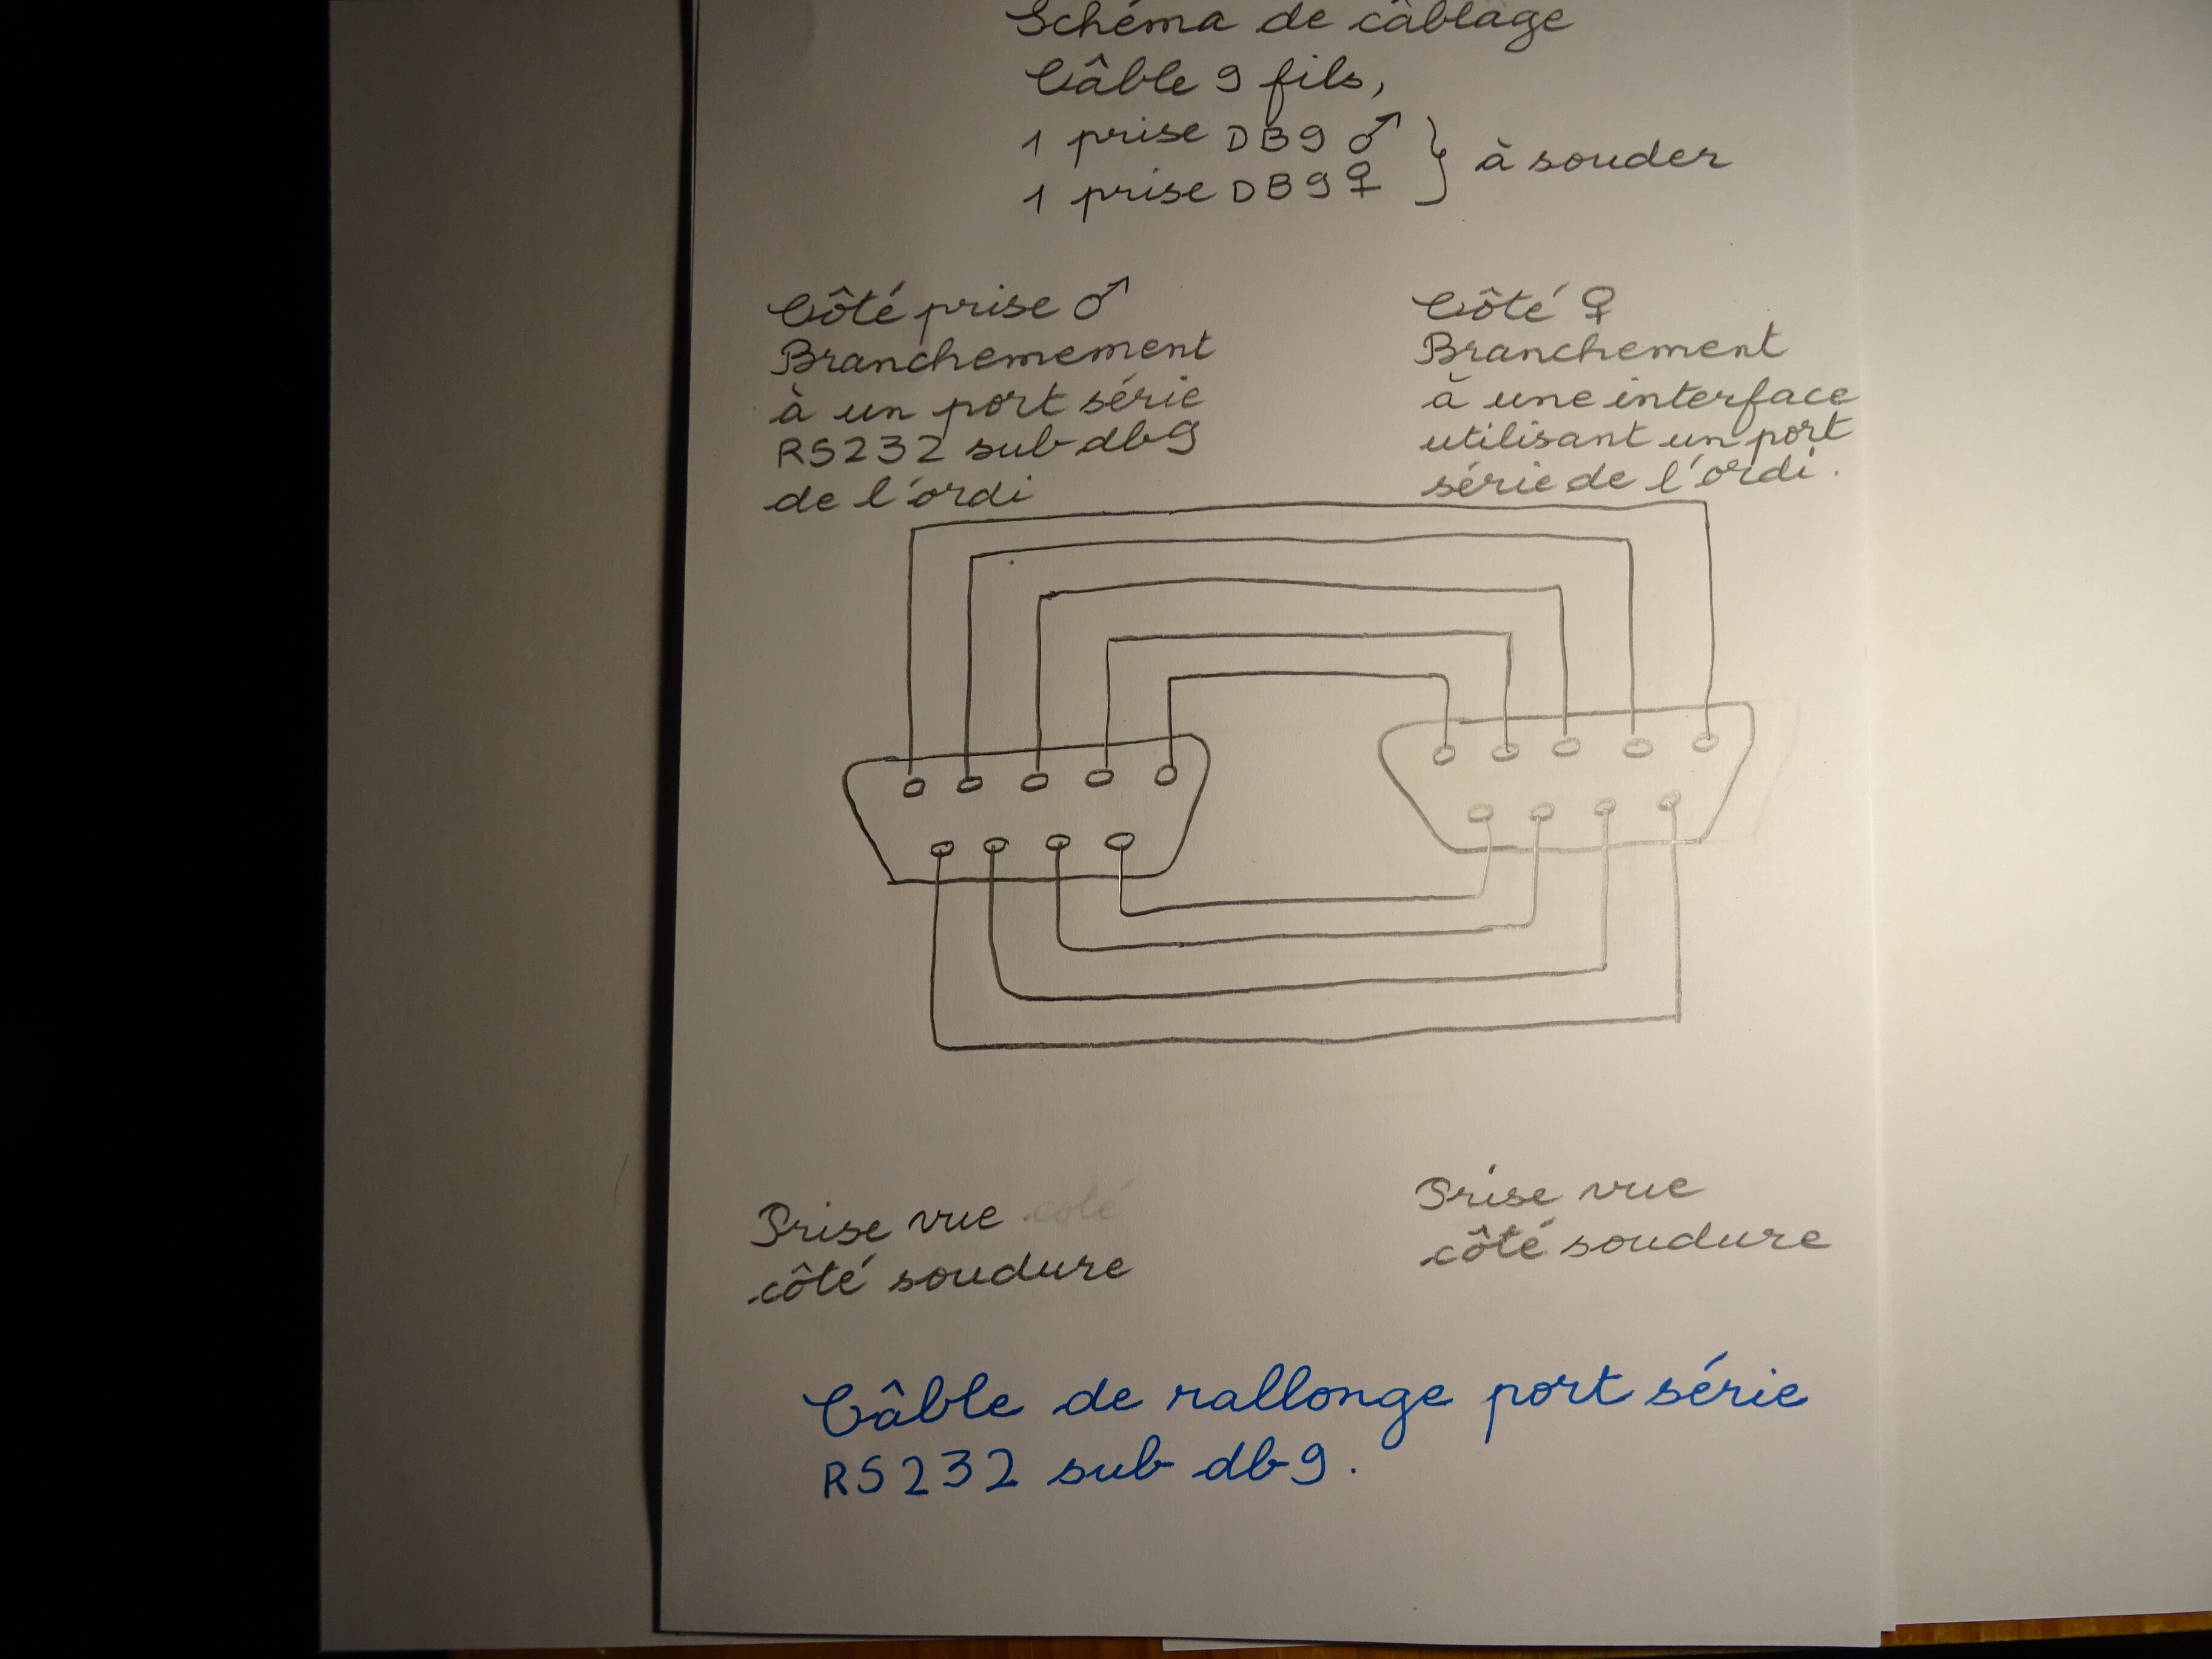 Schéma de câblage
Câble 9 fils,
1 prise DB9 ♂
1 prise DB9 ♀
} à souder
Côté prise ♂
Branchemement
à un port série
RS232 sub db9
de l'ordi
Côté ♀
Branchement
à une interface
utilisant un port
série de l'ordi.
Prise vue coté
côté soudure
Prise vue
côté soudure
Câble de rallonge port série
RS232 sub db9.